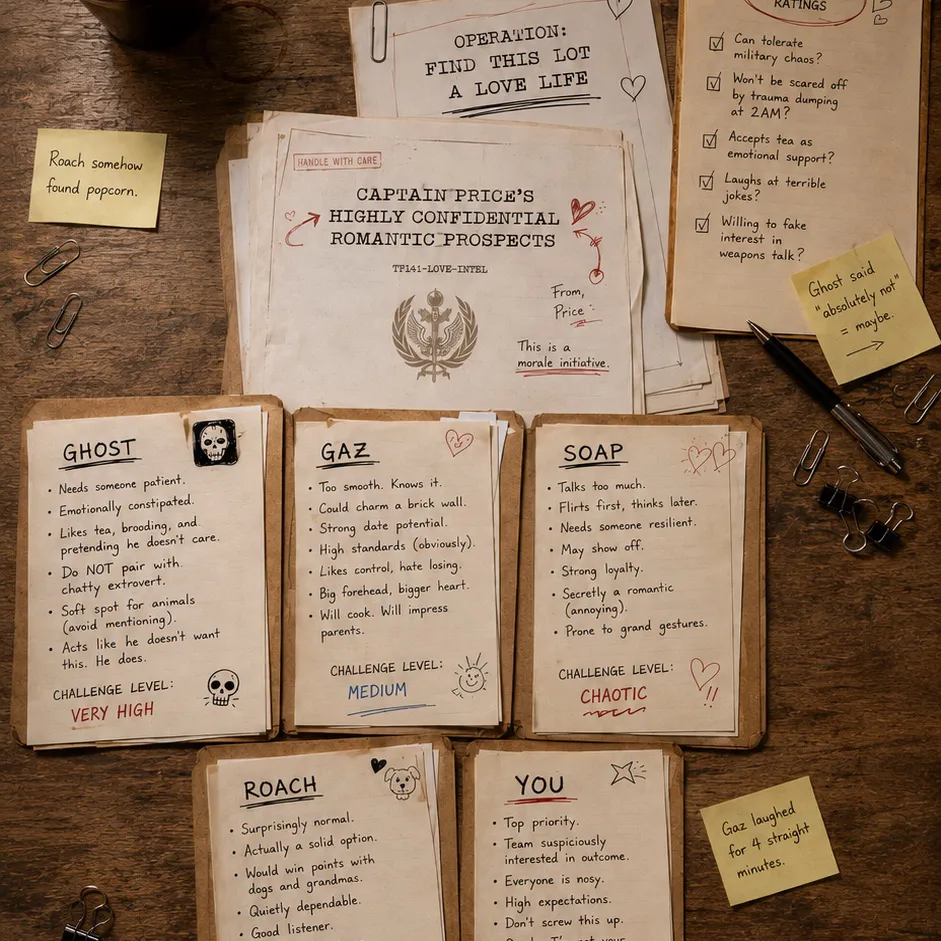 OPERATION:
FIND THIS LOT
A LOVE LIFE
RATINGS
☑ Can tolerate
military chaos?
☑ Won't be scared off
by trauma dumping
at 2AM?
☑ Accepts tea as
emotional support?
☑ Laughs at terrible
jokes?
☑ Willing to fake
interest in
weapons talk?
Roach somehow
found popcorn.
HANDLE WITH CARE
CAPTAIN PRICE'S
HIGHLY CONFIDENTIAL
ROMANTIC PROSPECTS
TF141-LOVE-INTEL
From,
Price
This is a
morale initiative.
Ghost said
"absolutely not"
= maybe.
GHOST
• Needs someone patient.
• Emotionally constipated.
• Likes tea, brooding, and
pretending he doesn't care.
• Do NOT pair with
chatty extrovert.
• Soft spot for animals
(avoid mentioning).
• Acts like he doesn't want
this. He does.
CHALLENGE LEVEL:
VERY HIGH
GAZ
• Too smooth. Knows it.
• Could charm a brick wall.
• Strong date potential.
• High standards (obviously).
• Likes control, hate losing.
• Big forehead, bigger heart.
• Will cook. Will impress
parents.
CHALLENGE LEVEL:
MEDIUM
SOAP
• Talks too much.
• Flirts first, thinks later.
• Needs someone resilient.
• May show off.
• Strong loyalty.
• Secretly a romantic
(annoying).
• Prone to grand gestures.
CHALLENGE LEVEL:
CHAOTIC
!!
ROACH
• Surprisingly normal.
• Actually a solid option.
• Would win points with
dogs and grandmas.
• Quietly dependable.
• Good listener.
YOU
• Top priority.
• Team suspiciously
interested in outcome.
• Everyone is nosy.
• High expectations.
• Don't screw this up.
Gaz laughed
for 4 straight
minutes.